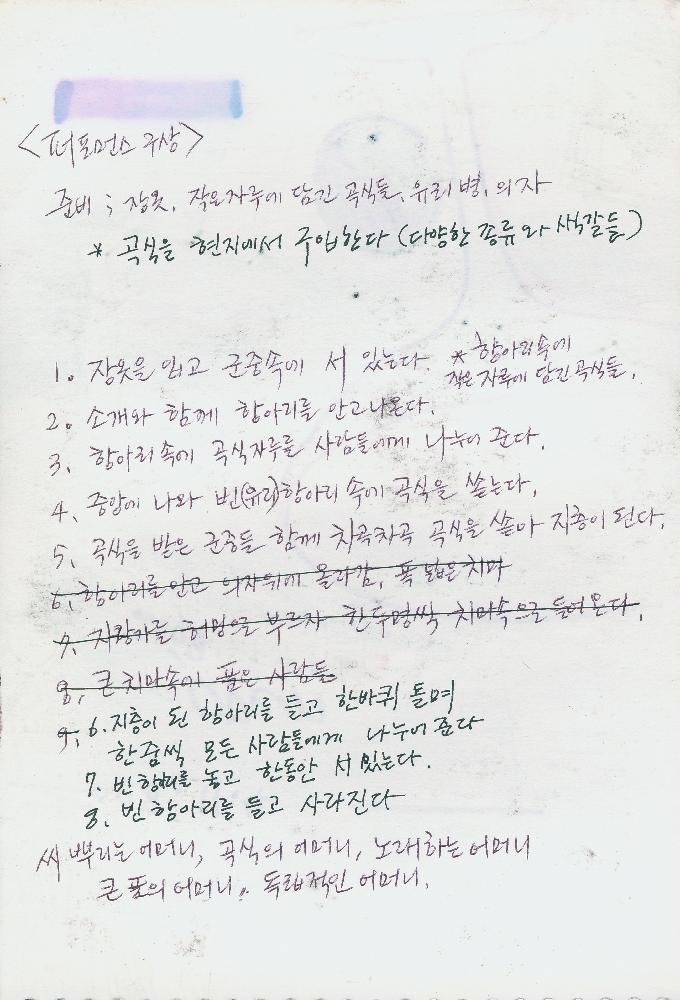 <퍼포먼스 구상>
준비 ; 장옷, 작은자루에 담긴 곡식들, 유리병, 의자
* 곡식을 현지에서 구입한다 (다양한 종류와 색깔들)
1. 장옷을 입고 군중속에 서 있는다. * 항아리속에
작은 자루에 담긴 곡식들.
2. 소개와 함께 항아리를 안고나온다.
3. 항아리 속에 곡식자루를 사람들에게 나누어 준다.
4. 중앙에 나와 빈(유리)항아리 속에 곡식을 쏟는다.
5. 곡식을 받은 군중들 함께 차곡차곡 곡식을 쏟아 지층이 된다.
6. 항아리를 안고 의자위에 올라감, 폭 넓은 치마
7. 자장가를 허밍으로 부르자 한두명씩 치마속으로 들어온다.
8. 큰 치마속에 품은 사람들
9, 6. 지층이 된 항아리를 들고 한바퀴 돌며
한줌씩 모든 사람들에게 나누어 준다
7. 빈 항아리를 놓고 한동안 서 있는다.
8. 빈 항아리를 들고 사라진다
씨 뿌리는 어머니, 곡식의 어머니, 노래하는 어머니
큰 품의 어머니, 독립적인 어머니.